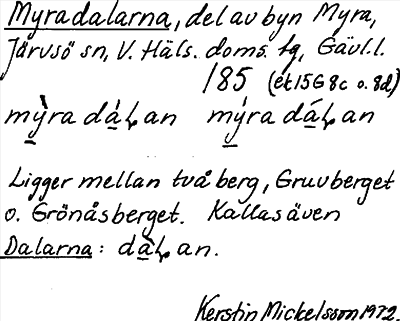 Myradalarna, del av byn Myra,
Järvsö sn, V. Häls. doms. tg, Gävl.l.
185 (ek 15G 8c o. 8d)
mỳ̱ra dá̱ɽan  mý̱ra dá̱ɽan
Ligger mellan två berg, Gruvberget
o. Grönåsberget. Kallas även
Dalarna: dà̱ɽan.
Kerstin Mickelsson 1972.